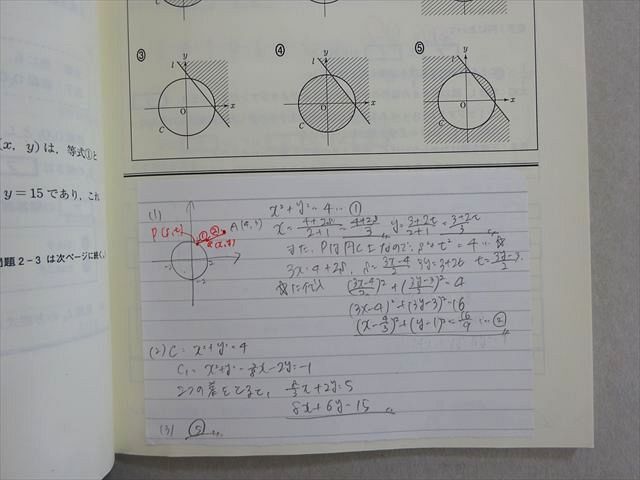 ③
④
⑤
y
l
O
x
C
y
l
O
x
C
y
l
O
x
C
(x, y) は, 等式①と
y = 15 であり, これ
問題 2-3 は次ページに続く
(1)
P(s,t)
A(4,3)
x² + y² = 4 … ①
x = (4+2s)/(2+1) = (4+2s)/3
y = (3+2t)/(2+1) = (3+2t)/3
また, PはC上なので, s²+t² = 4 …
3x = 4+2s, s = (3x-4)/2 3y = 3+2t t = (3y-3)/2
に代入 ((3x-4)/2)² + ((3y-3)/2)² = 4
(3x-4)² + (3y-3)² = 16
(x-4/3)² + (y-1)² = 16/9 … ②
-2
2
-2
(2) C = x²+y² = 4
C₁ = x²+y² - 8/3x - 2y = -1
2つの差をとると, 8/3x + 2y = 5
8x + 6y = 15
(3) ⑤